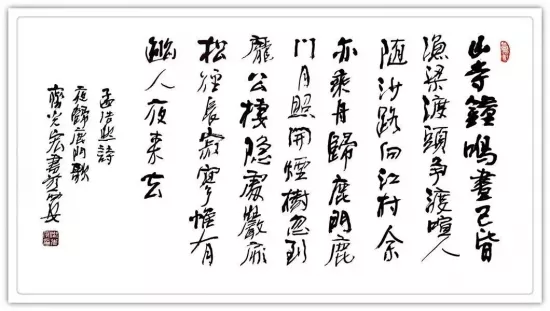 山寺鐘鳴晝已昏
漁梁渡頭爭渡喧人
随沙路向江村余
亦乘舟歸鹿門鹿
門月照開煙樹忽到
龐公棲隱處巖扉
松徑長寂寥惟有
幽人夜来去
孟浩然詩
夜歸鹿門歌
光宏書於西安